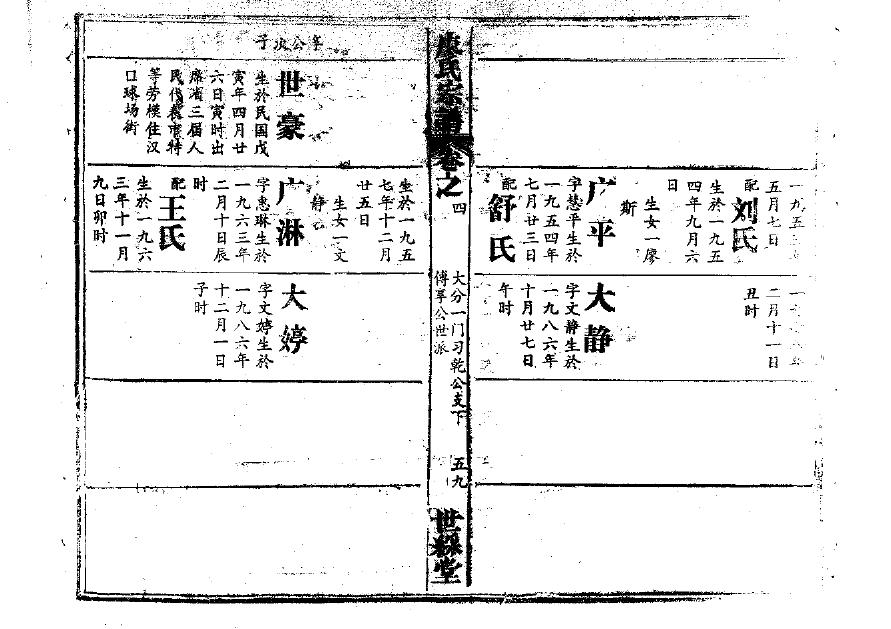 一九五
五月七日
配
刘氏
生於一九五
四年九月六
日
生女一廖
斯
广平
字慧平生於
一九五四年
七月廿三日
配
舒氏
二月十一日
丑时
大静
字文静生於
一九八六年
十月廿七日
午时
康氏宗谱
卷之四
大分一门习乾公支下
傅享公世派
五九
世䋛堂
年公次子
世豪
生於民国戊
寅年四月廿
六日寅时出
席湳三届人
民代表市特
等劳模住汉
口球场街
生於一九五
七年十二月
廿五日
生女一文
静
广淋
字惠琳生於
一九六三年
二月十日辰
时
配
王氏
生於一九六
三年十一月
九日卯时
大婷
字文婷生於
一九八六年
十二月一日
子时